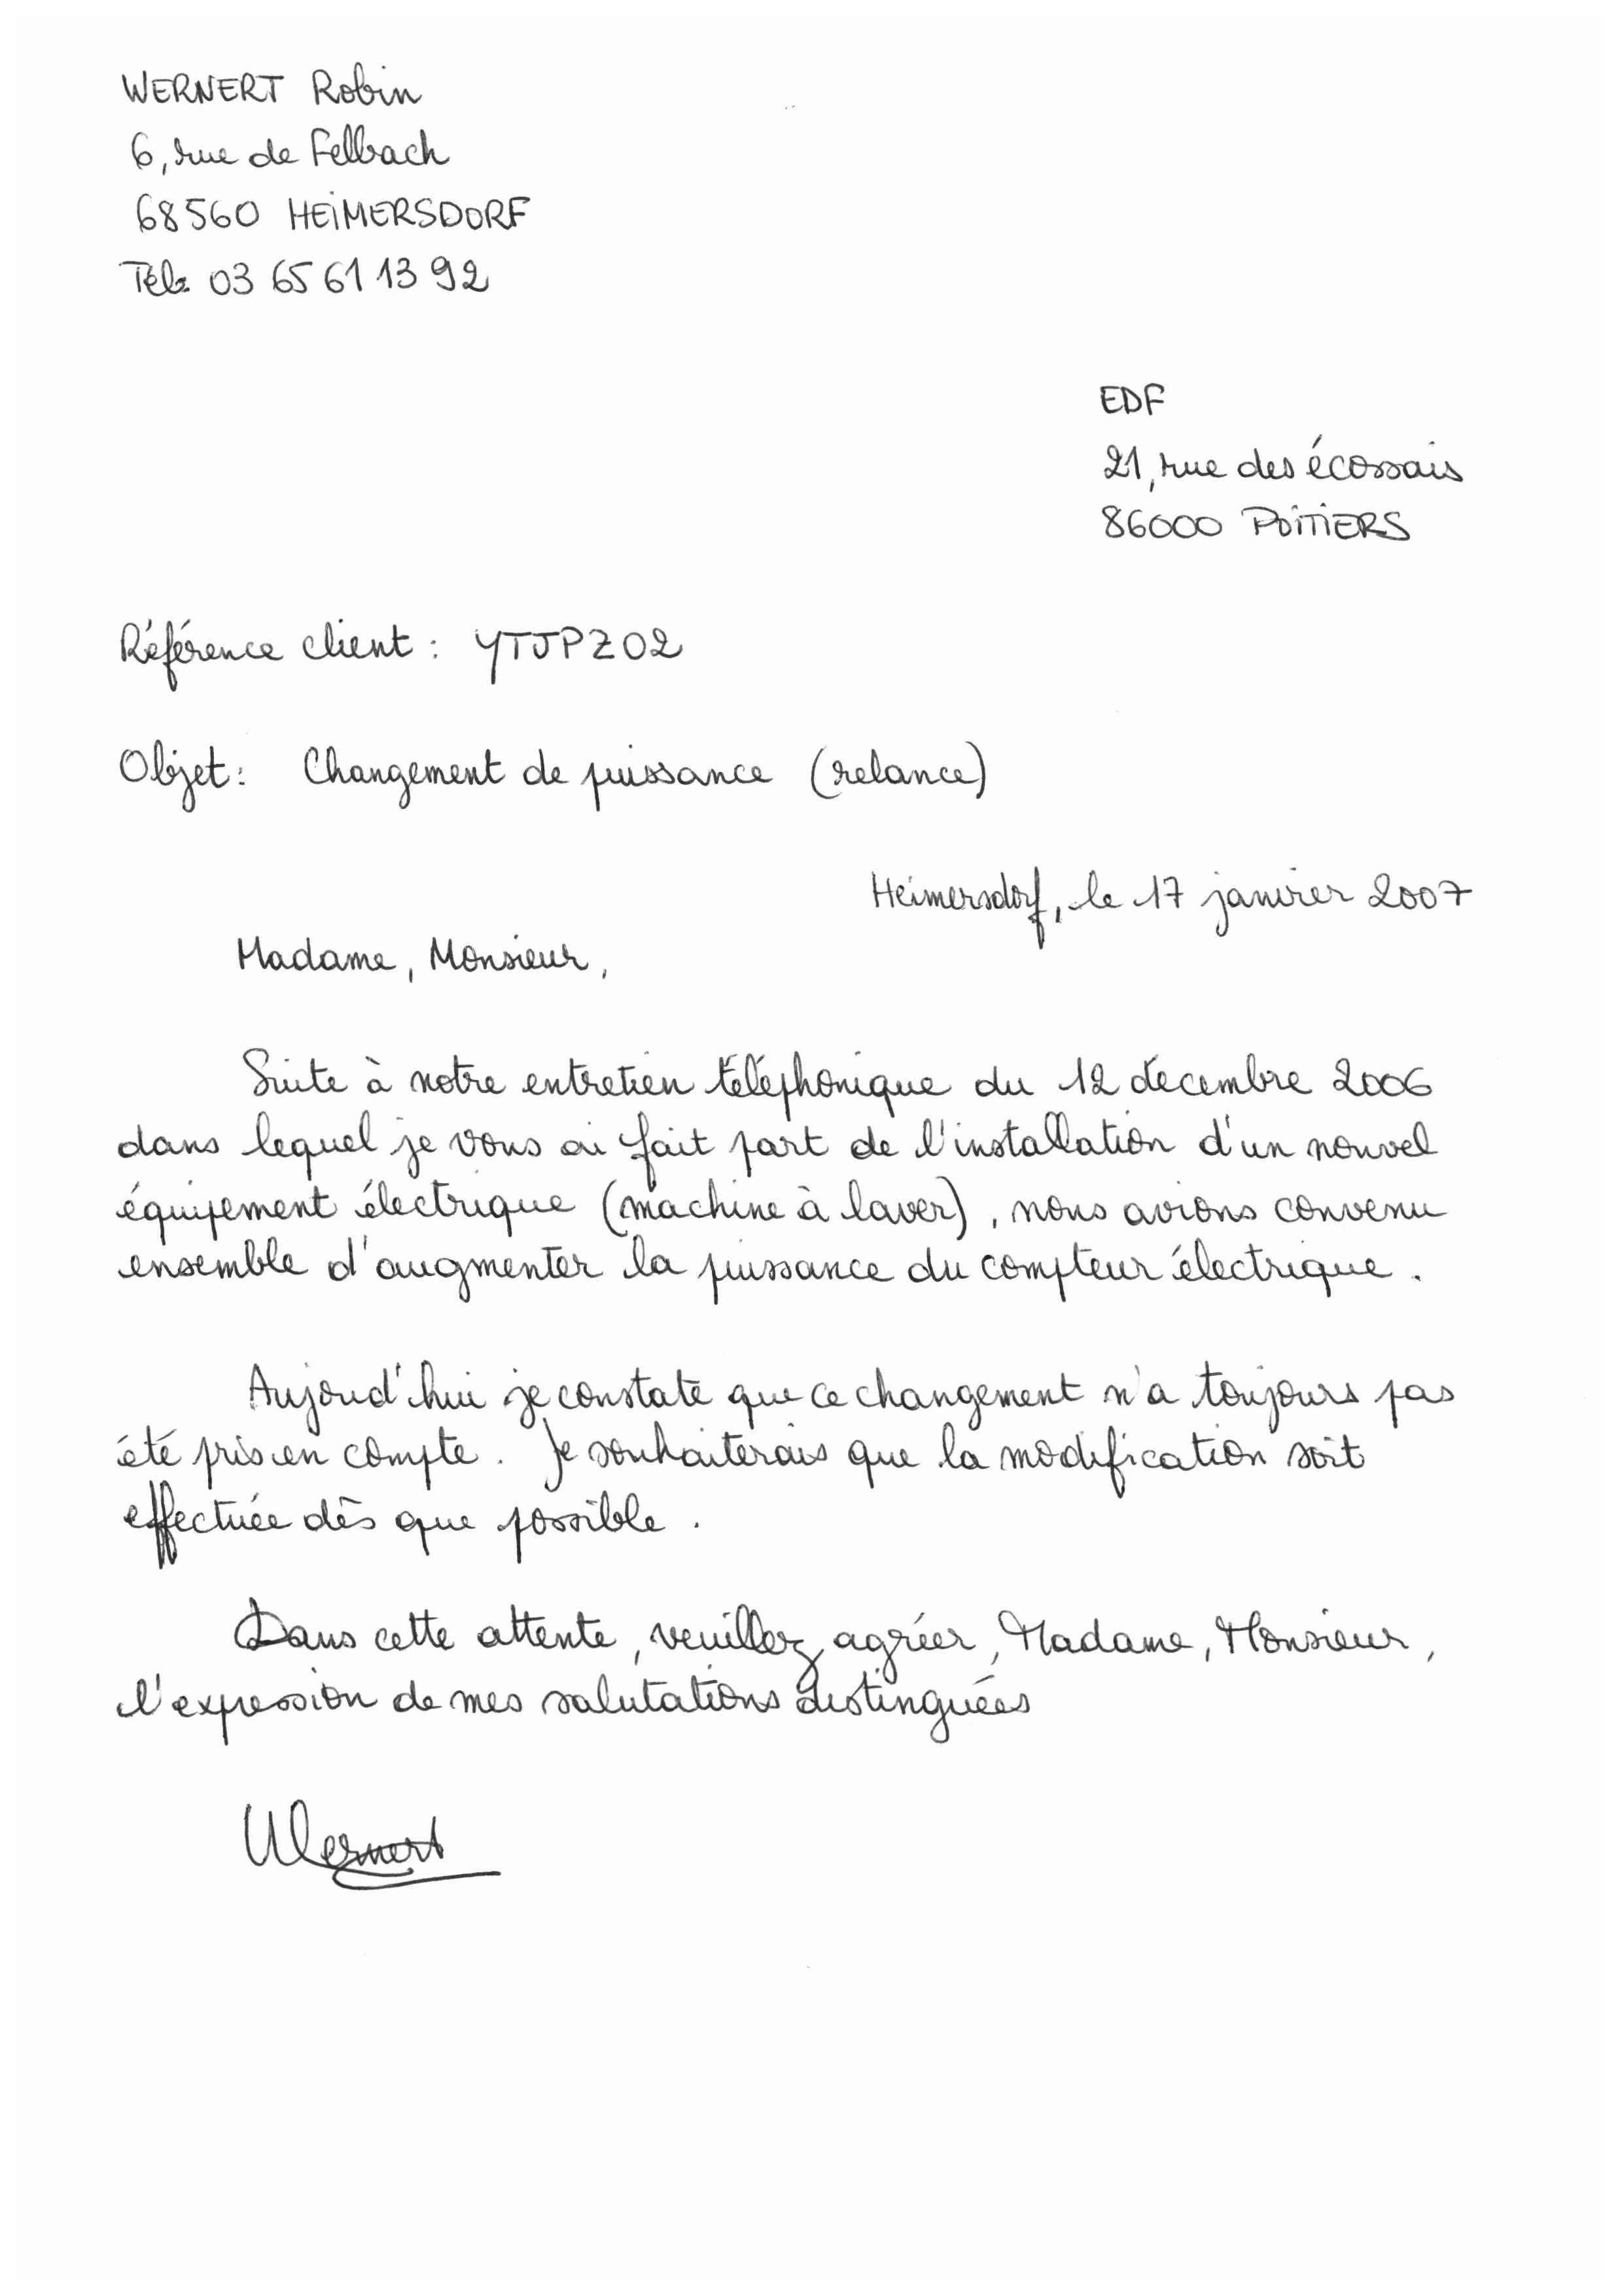 WERNERT Robin
6, rue de Felbach
68560 HEIMERSDORF
Tél: 03 65 61 13 92
EDF
21, rue des écossais
86000 POITIERS
Référence client : YTJPZ02
Objet : Changement de puissance (relance)
Heimersdorf, le 17 janvier 2007
Madame, Monsieur,
Suite à notre entretien téléphonique du 12 décembre 2006
dans lequel je vous ai fait part de l'installation d'un nouvel
équipement électrique (machine à laver), nous avions convenu
ensemble d'augmenter la puissance du compteur électrique.
Aujourd'hui je constate que ce changement n'a toujours pas
été pris en compte. Je souhaiterais que la modification soit
effectuée dès que possible.
Dans cette attente, veuillez agréer, Madame, Monsieur,
l'expression de mes salutations distinguées
Wernert